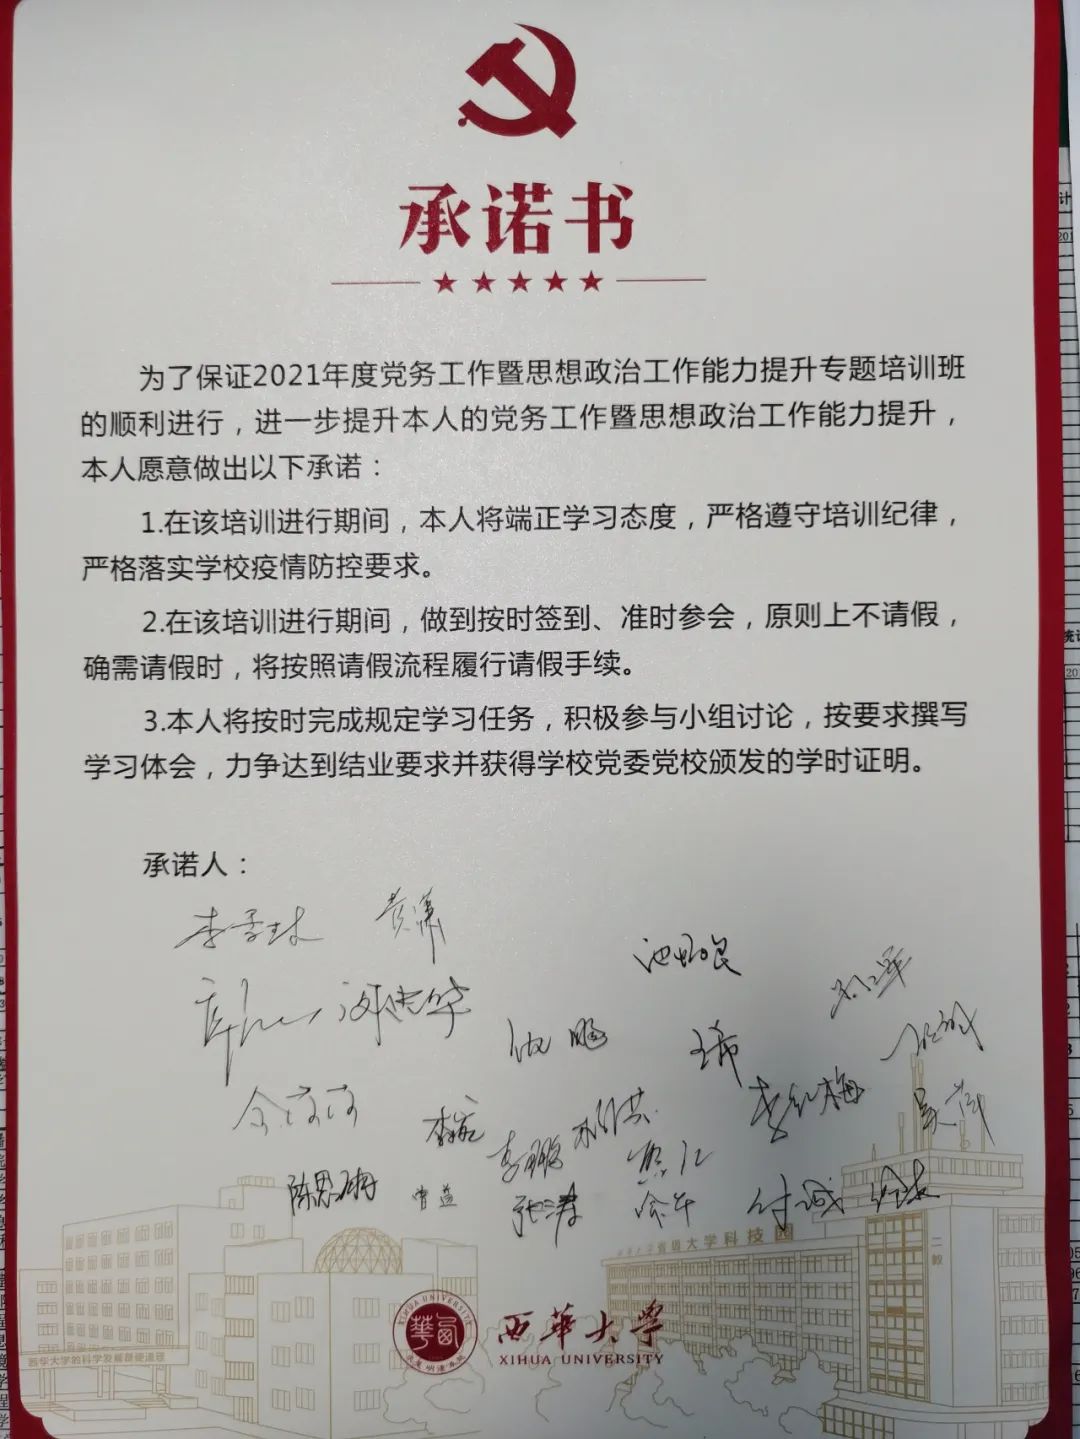 承诺书
为了保证2021年度党务工作暨思想政治工作能力提升专题培训班
的顺利进行，进一步提升本人的党务工作暨思想政治工作能力提升，
本人愿意做出以下承诺：
1.在该培训进行期间，本人将端正学习态度，严格遵守培训纪律，
严格落实学校疫情防控要求。
2.在该培训进行期间，做到按时签到、准时参会，原则上不请假，
确需请假时，将按照请假流程履行请假手续。
3.本人将按时完成规定学习任务，积极参与小组讨论，按要求撰写
学习体会，力争达到结业要求并获得学校党委党校颁发的学时证明。
承诺人：
黄潇
王希
李红梅
李鹏
陈思翀
曾益
张涛
付诚
大学科技园
二教
西華大学
XIHUA UNIVERSITY
XIHUA UNIVERSITY